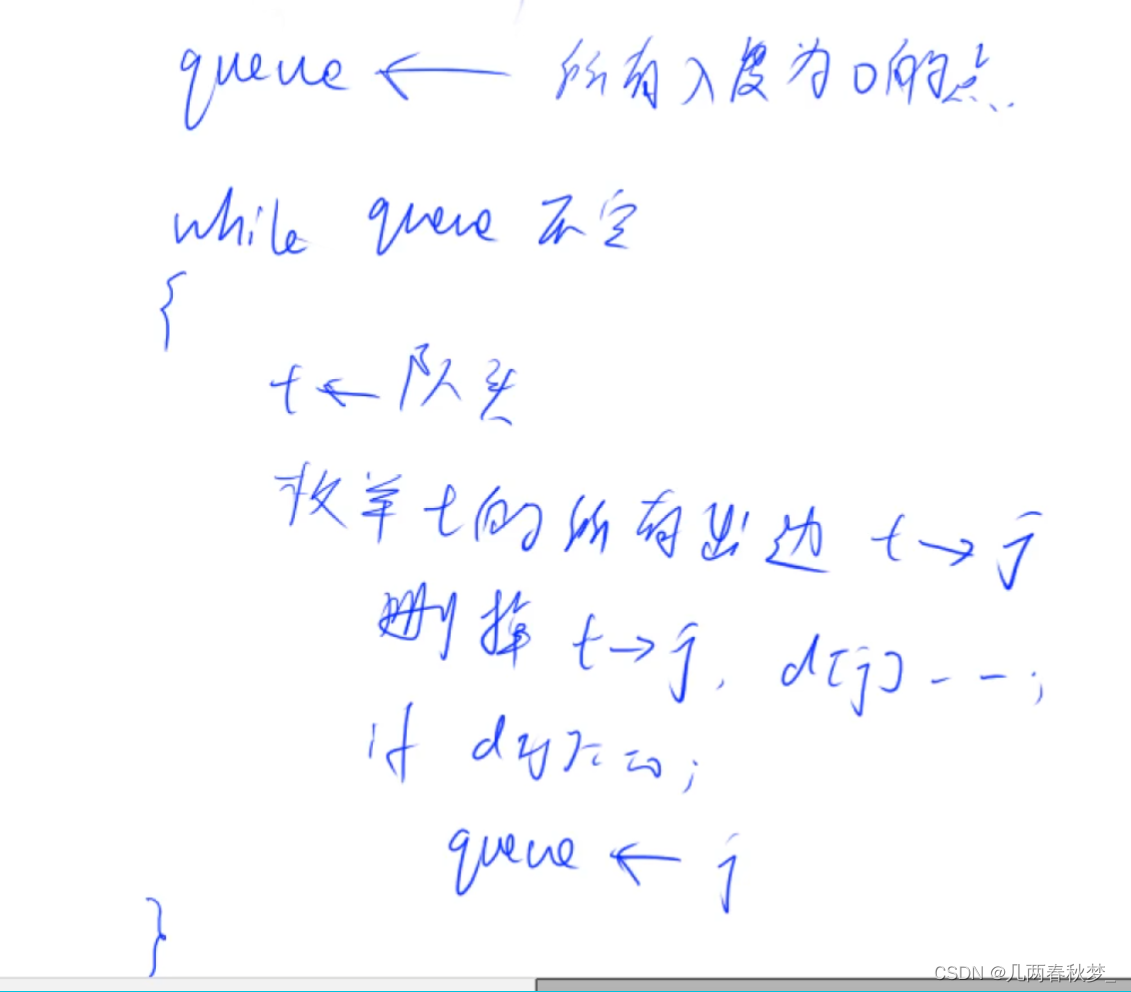 queue ← 所有入度为0的点
while queue 不空
{
t ← 队头
枚举 t 的所有出边 t → j
删掉 t → j, d[j]--;
if d[j] == 0;
queue ← j
}
CSDN @几两春秋梦_